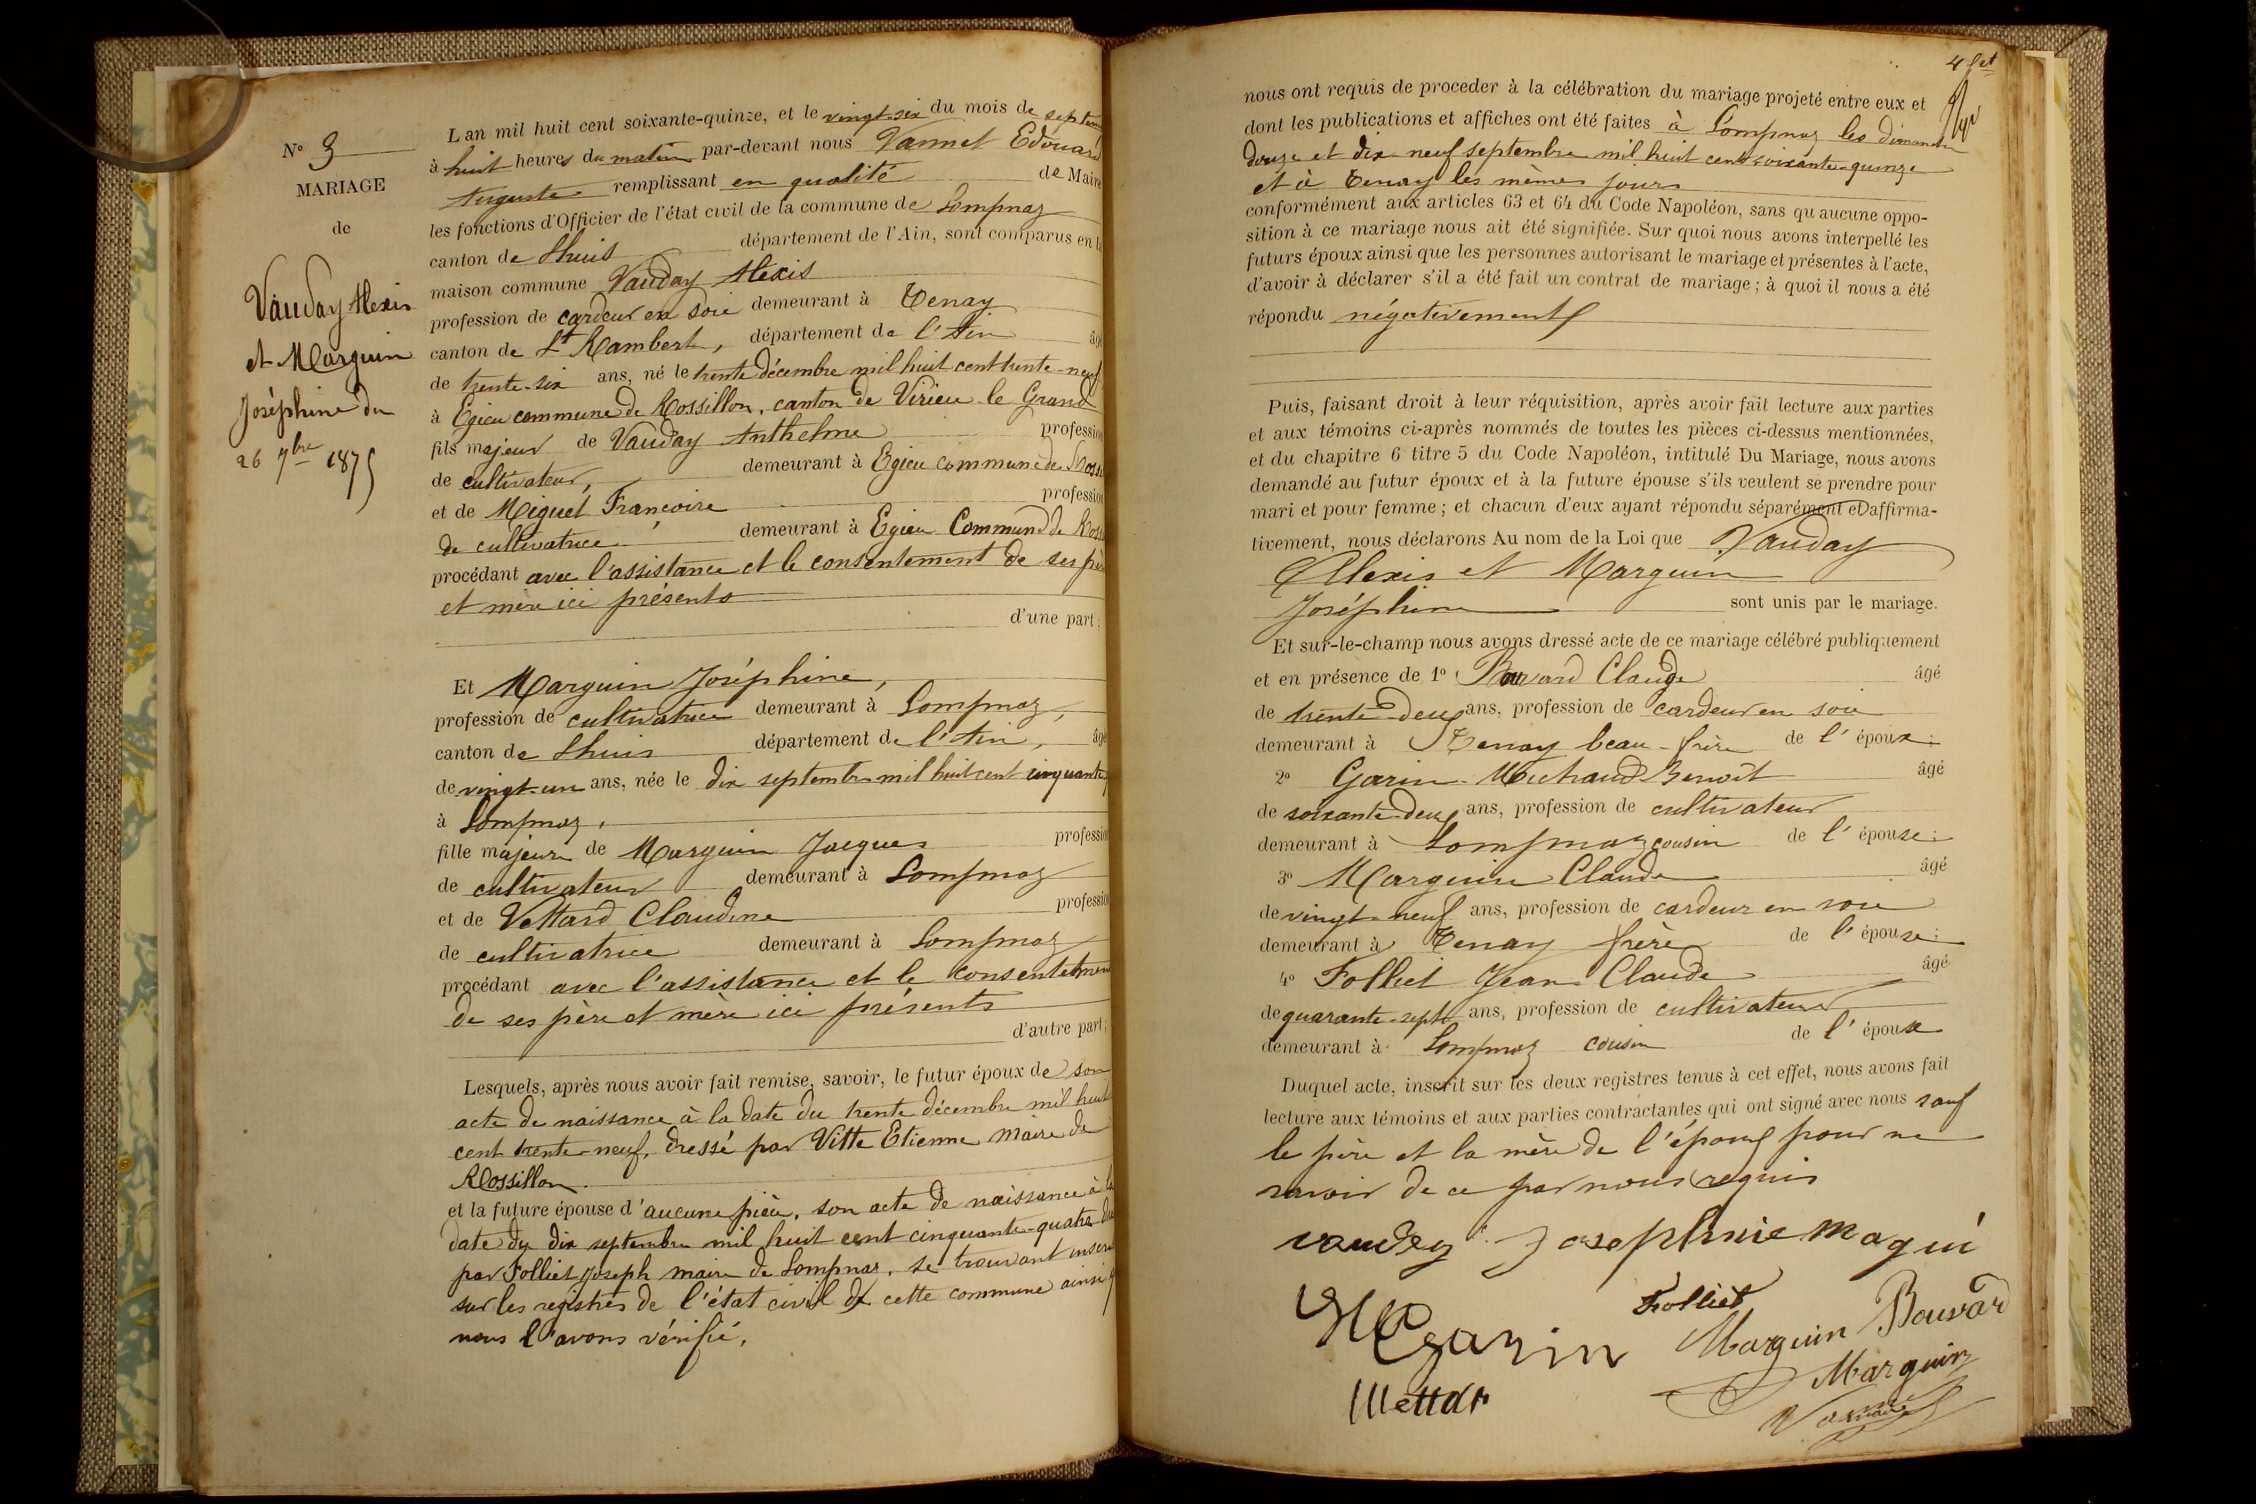 N° 3
MARIAGE
de
Vauday Alexis
et Marguin
Joséphine du
26 7bre 1875
L'an mil huit cent soixante-quinze, et le vingt-six du mois de septem
à huit heures du matin par-devant nous Vannet Edouard
Auguste remplissant en qualité de Maire
les fonctions d'Officier de l'état civil de la commune de Lompnaz
canton de Lhuis département de l'Ain, sont comparus en la
maison commune Vauday Alexis
profession de cardeur en soie demeurant à Tenay
canton de St Rambert, département de l'Ain âgé
de trente-six ans, né le trente décembre mil huit cent trente-neuf
à Egieu commune de Rossillon, canton de Virieu le Grand
fils majeur de Vauday Anthelme profession
de cultivateur, demeurant à Egieu commune de Ross
et de Miguet Françoise profession
de cultivatrice demeurant à Egieu Commune de Ross
procédant avec l'assistance et le consentement de ses père
et mère ici présents
d'une part;
Et Marguin Joséphine,
profession de cultivatrice demeurant à Lompnaz,
canton de Lhuis département de l'Ain, âgé
de vingt-un ans, née le dix septembre mil huit cent cinquante
à Lompnaz,
fille majeure de Marguin Jacques profession
de cultivateur demeurant à Lompnaz
et de Vettard Claudine profession
de cultivatrice demeurant à Lompnaz
procédant avec l'assistance et le consentement
de ses père et mère ici présents
d'autre part;
Lesquels, après nous avoir fait remise, savoir, le futur époux de son
acte de naissance à la date du trente décembre mil huit
cent trente-neuf, dressé par Vitte Etienne Maire de
Rossillon.
et la future épouse d'aucune pièce, son acte de naissance à la
date du dix septembre mil huit cent cinquante-quatre
par Folliet Joseph maire de Lompnas, se trouvant inséré
sur les registres de l'état civil de cette commune ainsi q
nous l'avons vérifié.
4 fet
nous ont requis de procéder à la célébration du mariage projeté entre eux et
dont les publications et affiches ont été faites à Lompnaz les dimanche
douze et dix-neuf septembre mil huit cent soixante-quinze
et à Tenay les mêmes jours
conformément aux articles 63 et 64 du Code Napoléon, sans qu'aucune oppo-
sition à ce mariage nous ait été signifiée. Sur quoi nous avons interpellé les
futurs époux ainsi que les personnes autorisant le mariage et présentes à l'acte,
d'avoir à déclarer s'il a été fait un contrat de mariage; à quoi il nous a été
répondu négativement
Puis, faisant droit à leur réquisition, après avoir fait lecture aux parties
et aux témoins ci-après nommés de toutes les pièces ci-dessus mentionnées,
et du chapitre 6 titre 5 du Code Napoléon, intitulé Du Mariage, nous avons
demandé au futur époux et à la future épouse s'ils veulent se prendre pour
mari et pour femme; et chacun d'eux ayant répondu séparément et affirma-
tivement, nous déclarons Au nom de la Loi que Vauday
Alexis et Marguin
Joséphine sont unis par le mariage.
Et sur-le-champ nous avons dressé acte de ce mariage célébré publiquement
et en présence de 1° Bouvard Claude âgé
de trente-deux ans, profession de cardeur en soie
demeurant à Tenay beau-frère de l'époux:
2° Garin-Michaud Benoît âgé
de soixante-deux ans, profession de cultivateur
demeurant à Lompnaz cousin de l'épouse:
3° Marguin Claude âgé
de vingt-neuf ans, profession de cardeur en soie
demeurant à Tenay frère de l'épouse:
4° Folliet Jean-Claude âgé
de quarante-sept ans, profession de cultivateur
demeurant à Lompnaz cousin de l'épouse
Duquel acte, inscrit sur les deux registres tenus à cet effet, nous avons fait
lecture aux témoins et aux parties contractantes qui ont signé avec nous sauf
le père et la mère de l'époux pour ne
savoir de ce par nous requis
vaudey Josephine Magui
Garin Folliet Marguin Bouvard
Marguin